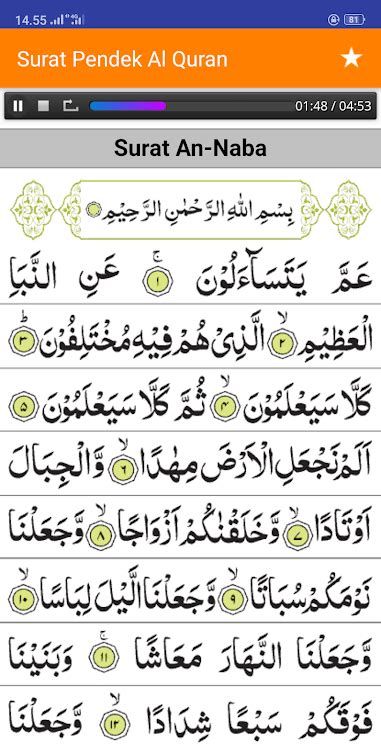 14.55 4G 81
Surat Pendek Al Quran
01:48 / 04:53
Surat An-Naba
بِسْمِ اللهِ الرَّحْمٰنِ الرَّحِيْمِ
عَمَّ يَتَسَآءَلُوْنَ ۚ ١ عَنِ النَّبَاِ
الْعَظِيْمِ ۙ ٢ الَّذِيْ هُمْ فِيْهِ مُخْتَلِفُوْنَ ۗ ٣
كَلَّا سَيَعْلَمُوْنَ ۙ ٤ ثُمَّ كَلَّا سَيَعْلَمُوْنَ ٥
اَلَمْ نَجْعَلِ الْاَرْضَ مِهٰدًا ۙ ٦ وَّالْجِبَالَ
اَوْتَادًا ۙ ٧ وَّخَلَقْنٰكُمْ اَزْوَاجًا ۙ ٨ وَّجَعَلْنَا
نَوْمَكُمْ سُبَاتًا ۙ ٩ وَّجَعَلْنَا الَّيْلَ لِبَاسًا ۙ ١٠
وَّجَعَلْنَا النَّهَارَ مَعَاشًا ۚ ١١ وَبَنَيْنَا
فَوْقَكُمْ سَبْعًا شِدَادًا ۙ ١٢ وَّجَعَلْنَا